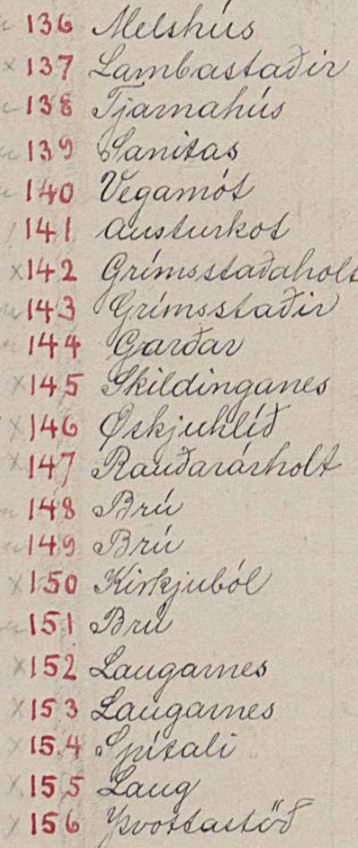 136 Melshús
× 137 Lambastaðir
138 Tjarnahús
139 Sanitas
140 Vegamót
141 Austurkot
×142 Grímsstaðaholt
143 Grímsstaðir
144 Garðar
×145 Skildinganes
×146 Øskjuhlíð
×147 Rauðarárholt
148 Brú
149 Brú
×150 Kirkjuból
151 Brú
×152 Laugarnes
×153 Laugarnes
×154 Spítali
×155 Laug
×156 Þvottastöð